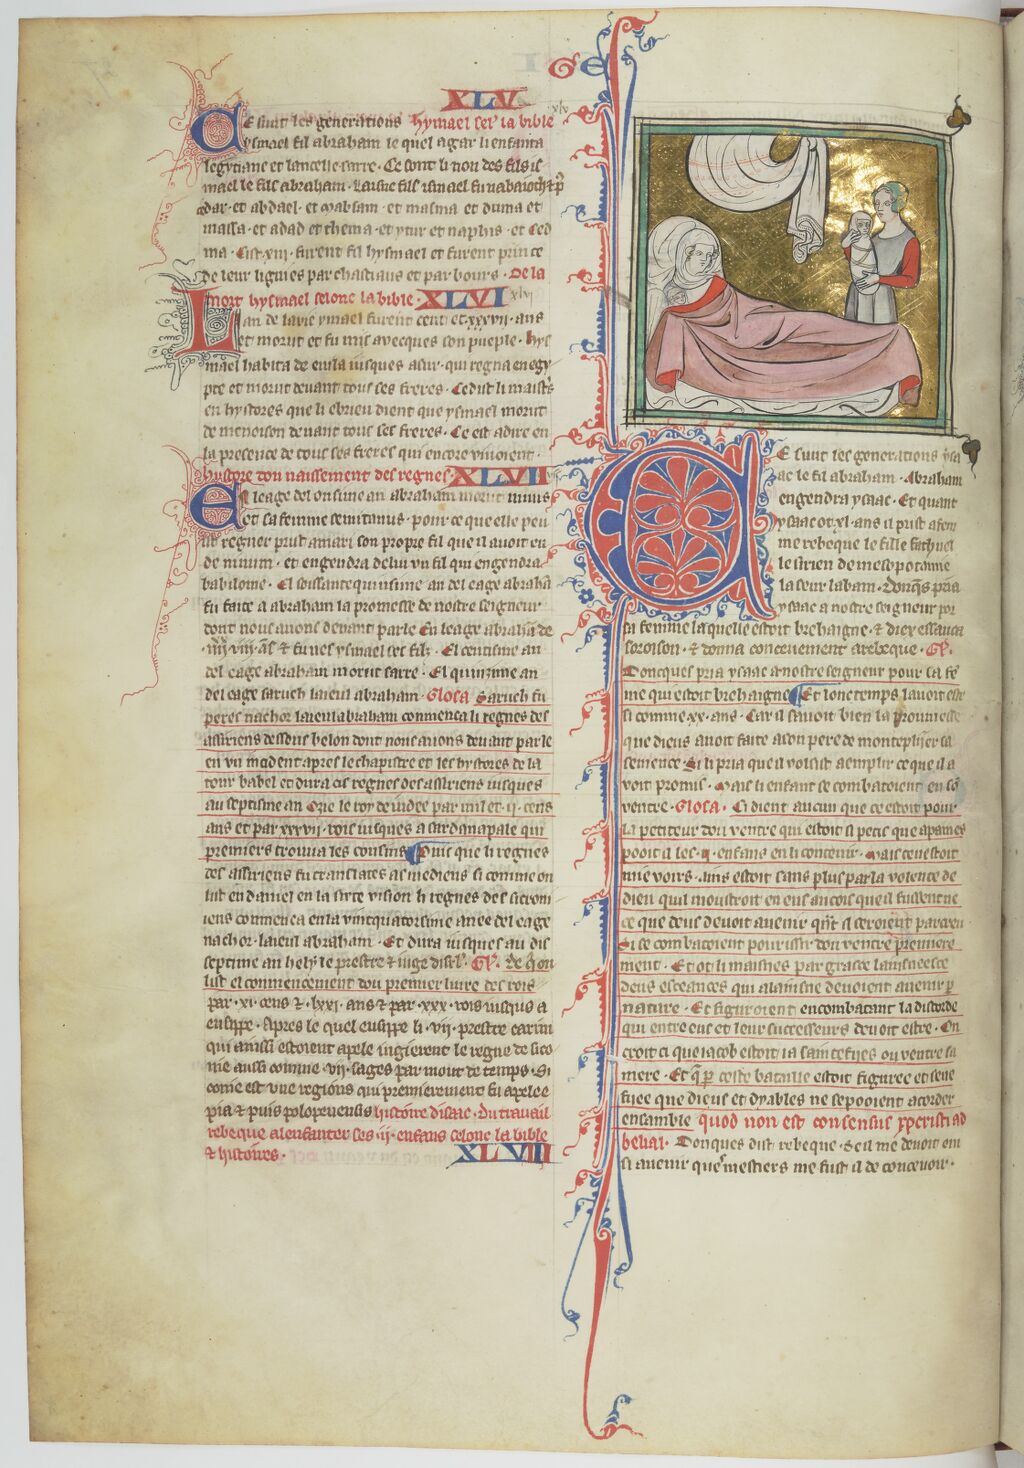 GE
XLV
Ce sunt les generations hysmael sel' la bible
ysmael fil abraham le quel agar li enfanta
legytiane et lancelle sarre. Ce sont li non des fils is
mael le fils abraham.
cedar. et abdael. et mabsam. et masma et duma et
massa. et adad et thema. et ytur et naphis. et ced
ma. Cist .xii. furent fil hysmael et furent prince
de leur lignies par chastiaus et par bours. De la
mort hysmael selonc la bible. XLVI
Lan de la vie ymael furent cent et .xxxvii. ans
et morut et fu mis avecques son pueple. hys
mael habita de euila iusques asur. qui regna en egy
pte et morut devant tous ses freres. Ce dist li maistres
en hystores que li ebrieu dient que ysmael morut
de menoison devant tous ses freres. Ce est a dire en
la presence de tous ses freres qui encore vivoient.
hystore dou naissement des regnes. XLVII
El eage del onsime an abraham morut ninus
et sa femme semiramis. pour ce que elle peu
ist regner prist a mari son propre fil que il avoit eu
de ninum. et engendra de lui un fil qui engendra
babiloine. El soissante quinsime an del eage abraham
fu faite a abraham la promesse de nostre seigneur
dont nous avons devant parle En leage abraham de
et fu nes ysmael ses filz. El centisme an
del eage abraham morut sarre. El quinzime an
del eage saruch laieul abraham. Glosa Saruch fu
peres nachor laieul abraham commenca li regnes des
assiriens dessous belon dont nous avons devant parle
en un incident apres le chapistre et les hystores de la
tour babel et dura cis regnes des assiriens iusques
au septisme an que le roy de iudee par mil et .ij. cens
ans et par xxxvij. rois iusques a sardanapale qui
premiers trouva les coussins Puis que li regnes
des assiriens fu translates as mediens si comme on
list en daniel en la sixte vision li regnes des sicioni
iens commenca en la vintquatorisme anee del eage
nachor. laieul abraham. Et dura iusques au dis
septime an hely le prestre et iuge disrl'. Gl'. de q on
list el commencement dou premier livre des rois
par .xi. cens et .lxxi. ans et par .xxx. rois iusqus a
eusippe. Apres le quel eusippe li .vij. prestre carini
qui aussi estoient apele iugierent le regne de sico
nie aussi comme .vij. sages par mout de temps. Si
conie est une regions qui premierement fu apelee
pia et puis polopenensis histoire disaac. Du travail
rebeque a lenfanter ses .ij. enfans selonc la bible
et histoires. XLVIII
Ce sunt les generations ysa
ac le fil abraham. Abraham
engendra ysaac. Et quant
ysaac ot .xl. ans il prist a fem
me rebeque le fille bathuel
le sirien de mesopotanie
la seur labam. Donques pria
ysaac a nostre seigneur por
sa femme la quelle estoit brehaigne. et diex essauca
soroison. et donna concevement a rebeque. Gl'.
Doncques pria ysaac a nostre seigneur pour sa fe
me qui estoit brehaigne Et lonc temps lavoit este
si comme .xx. ans. Car il savoit bien la proumesse
que dieus avoit faite a son pere de monteplier sa
semence Si li pria que il vosist aemplir ce que il a
voit promis. Mais li enfant se combatoient en son
ventre. Glosa. Ci dient aucun que ce estoit pour
la petiteur dou ventre qui estoit si petis que a paines
pooit il les .ij. enfans en li concevir. Mais ce n estoit
mie voirs. ains estoit sans plus par la volente de
dieu qui moustroit en eus ancois que il fussent ne
ce que deus devoit avenir qant il seroient parcreu
Si se combatoient pour issir dou ventre premiere
ment. Et ot li maisnes par grasce lainsneesce
deus esceances qui a lainsne devoient avenir p
nature. Et figuroient en combatant la discorde
qui entre eus et leur successeurs devoit estre. On
croit ci que iacob estoit ia saintefies ou ventre sa
mere. Et que par ceste bataille estoit figuree et sene
fiee que dieus et dyables ne se pooient acorder
ensamble quod non est consensus xpristi ad
belial. Donques dist rebeque. Se il me devoit ein
si avenir que mestiers me fust il de concevoir.